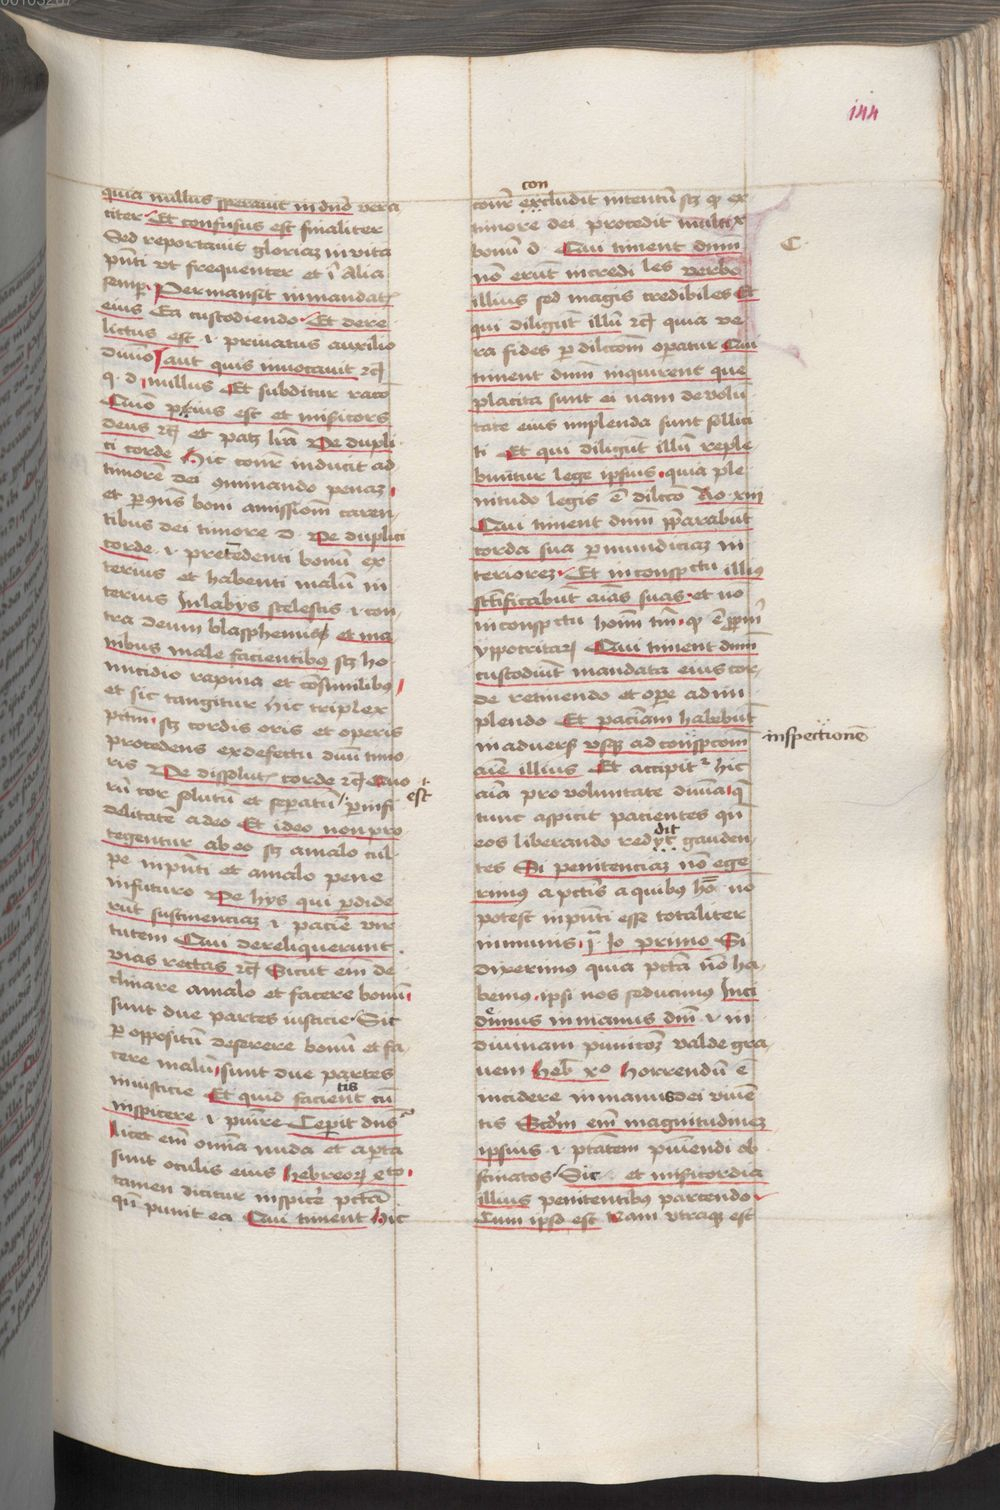 00103267
144
quia nullus sperauit in dno vera
citer Et confusus est finaliter
Sed reportauit gloriaz in vita
pnti vt frequenter et ī Alia
semp Permansit in mandat
eius Ea custodiendo Et dere
lictus est .i. priuatus auxilio
diuino aut quis inuocauit rc
q. d. nullus Et subditur raco
Quo pius est et misicors
deus rc et patz lra Ve dupli
ci corde Hic conr inducit ad
timore dei 9minando penaz
et per 9ns boni amissiom caren
tibus dei timore d. Ve duplici
corde .i. pretendenti bonu ex
terius et habenti malu in
terius In labys scelestis .i. con
tra deum blasphemis et ma
nibus male facientibus sz ho
micidio rapina et consimilibus
et sic tangitur hic triplex
pctm sz cordis oris et operis
procedens ex defectu diuni timo
ris Ve dissolut corde rc Quo
ru cor solutu et sepatu est per infi
delitate a deo Et ideo non pro
tegentur ab eo sz a malo cul
pe in pnti et a malo pene
in futuro Ve hys qui perdide
rut sustinenciaz .i. pacie vir
tutem Qui dereliquerunt
vias rectas rc Sicut eim de
clinare a malo et facere bonum
sunt due partes iusticie Sic
per oppositu deserere bonu et fa
cere malu sunt due partes
iniusticie Et quid facient cu
inspicere .i. punire Ceperit dns
licet eim omnia nuda et aperta
sunt oculis eius hebreor 4to
tamen dicitur inspicere pcta
qn punit ea Qui timent Hic
con
conr excludit intentu sz q ex
timore dei procedit multiplex
bonu d. Qui timent dnm
C
no erunt incredi les verbo
illius sed magis credibiles Et
qui diligut illu rc quia ve
ra fides per dilcom operatur Qui
timent dnm inquirent que
placita sunt ei nam de volu
tate eius implenda sunt sollici
ti Et qui diligut illu reple
buntur lege ipsius quia ple
nitudo legis e dilcco Ro xiii
Qui timent dnm pparabut
corda sua per mundiciaz in
teriorez Et in conspectu illius
sctificabut aias suas et no
in conspectu homi tm q e propriu
ypocritar Qui timent dnm
custodiut mandata eius cor
de retinendo et ope adim
plendo Et paciam habebut
in aduers vsq ad conspcom
inspectione
aie illius Et accipit hic
aia pro voluntate diuina q
tunc aspicit pacientes qn
eos liberando reddit gauden
tes Si penitenciaz no ege
rimus a pctis a quibus ho no
potest in pnti esse totaliter
inmunis .i. Io primo Si
dixerimus quia pcta no ha
bemus ipsi nos seducimus Inci
demus in manus dni .i. in
diuinam punicoz valde gra
uem Heb xo Horrendu e
incidere in manus dei viuen
tis Scdm eim magnitudinez
ipsius .i. ptatem puniendi ob
stinatos Sic et misicordia
illius penitentibus parcendo
Cum ipso est Nam vtraque est